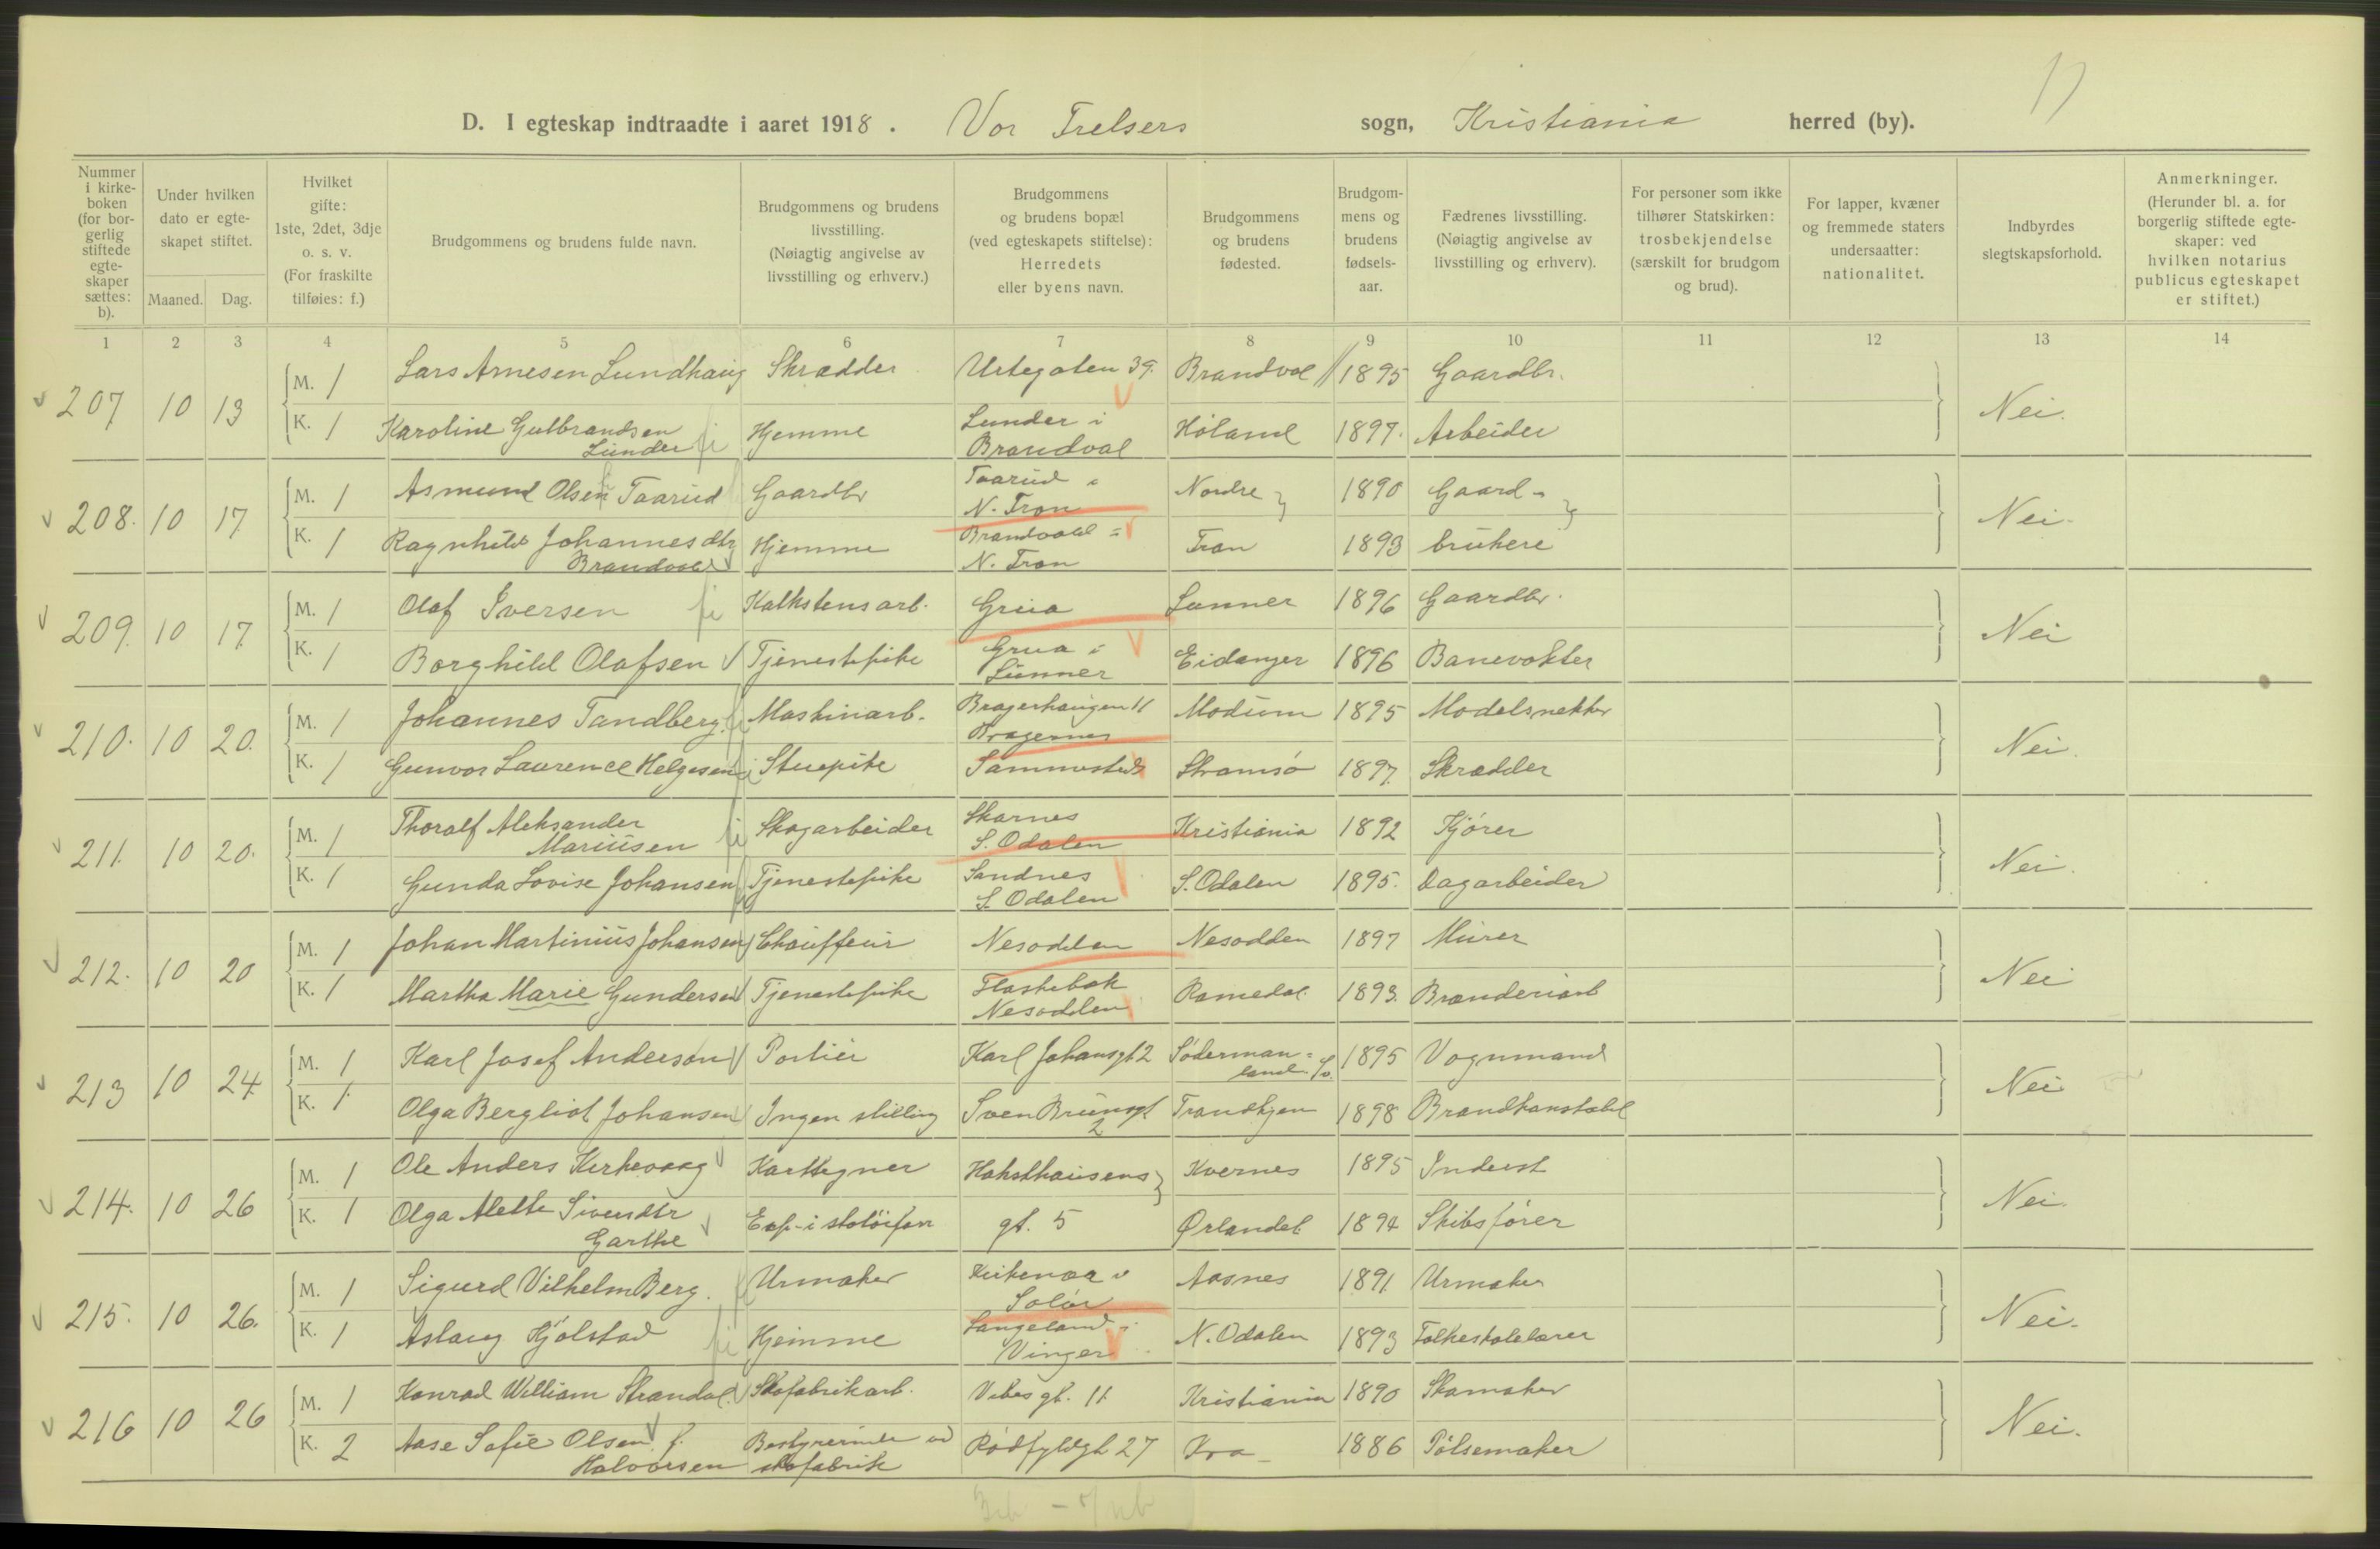 17
D. I egteskap indtraadte i aaret 1918. Vor Frelsers sogn, Kristiania herred (by).
Nummer i kirke-boken (for bor-gerlig stiftede egte-skaper sættes: b).
Under hvilken dato er egte-skapet stiftet.
Maaned. Dag.
Hvilket gifte: 1ste, 2det, 3dje o. s. v. (For fraskilte tilføies: f.)
Brudgommens og brudens fulde navn.
Brudgommens og brudens livsstilling. (Nøiagtig angivelse av livsstilling og erhverv.)
Brudgommens og brudens bopæl (ved egteskapets stiftelse): Herredets eller byens navn.
Brudgommens og brudens fødested.
Brudgom-mens og brudens fødsels-aar.
Fædrenes livsstilling. (Nøiagtig angivelse av livsstilling og erhverv).
For personer som ikke tilhører Statskirken: trosbekjendelse (særskilt for brudgom og brud).
For lapper, kvæner og fremmede staters undersaatter: nationalitet.
Indbyrdes slegtskapsforhold.
Anmerkninger. (Herunder bl. a. for borgerlig stiftede egte-skaper: ved hvilken notarius publicus egteskapet er stiftet.)
1 2 3 4 5 6 7 8 9 10 11 12 13 14
207 10 13 M. 1 Lars Arnesen Lundhaug Skrædder Urtegaten 39. Brandval 1895 Gaardbr.
K. 1 Karoline Gulbrandsen Lunder Hjemme Lunder i Brandval Høland 1897. Arbeider Nei.
208. 10 17. M. 1 Asmund Olsen Taarud Gaardbr Taarud N. Fron Nordre 1890 Gaard-
K. 1 Ragnhild Johannesdtr Brandvold Hjemme Brandvold N. Fron Fron 1893 brukere Nei.
209. 10 17. M. 1 Olaf Iversen Kalkstensarb. Grua Lunner 1896 Gaardbr.
K. 1 Borghild Olafsen Tjenestepike Grua i Lunner Eidanger 1896 Banevokter Nei
210. 10 20. M. 1 Johannes Tandberg. Maskinarb. Bragerhaugen 11 Bragernes Modum 1895 Modelsnekker
K. 1 Gunvor Laurence Helgesen Stuepike Sammesteds Strømsø 1897. Skrædder Nei.
211. 10 20. M. 1 Thoralf Aleksander Mariusen Skogarbeider Skarnes S. Odalen Kristiania 1892 Kjører
K. 1 Gunda Lovise Johansen Tjenestepike Sandnes S. Odalen S. Odalen 1895. Dagarbeider Nei.
212. 10 20 M. 1 Johan Martinius Johansen Chauffeur Nesodden Nesodden 1897 Murer
K. 1 Martha Marie Gundersen Tjenestepike Flaskebæk Nesodden Romedal. 1893. Brænderiarb Nei
213 10 24. M. 1 Karl Josef Anderson Portier Karl Johansgt 2 Söderman=land. 1895 Vognmand
K. 1 Olga Bergliot Johansen Ingen stilling Sven Brunsgt 2 Trondhjem 1898 Brandkonstabel Nei
214. 10 26 M. 1 Ole Anders Kirkevaag Karttegner Haksthausens Kvernes 1895 Inderst
K. 1 Olga Alette Sivertsdtr Garthe Exp. i skotøifor. gt. 5 Ørlandet 1894 Skibsfører Nei.
215. 10 26. M. 1 Sigurd Vilhelm Berg. Urmaker Kirkenær i Solør Aasnes 1891 Urmaker
K. 1 Aslaug Hjølstad Hjemme Langeland i Vinger N. Odalen 1893 Folkeskolelærer Nei.
216 10 26 M. 1 Konrad William Strandal. Skofabrikarb. Vibes gt. 11 Kristiania 1890 Skomaker
K. 2 Aase Sofie Olsen f. Halvorsen Bestyrerinde ved skofabrik Rødfyldgt 27 Kra 1886 Pølsemaker Nei.